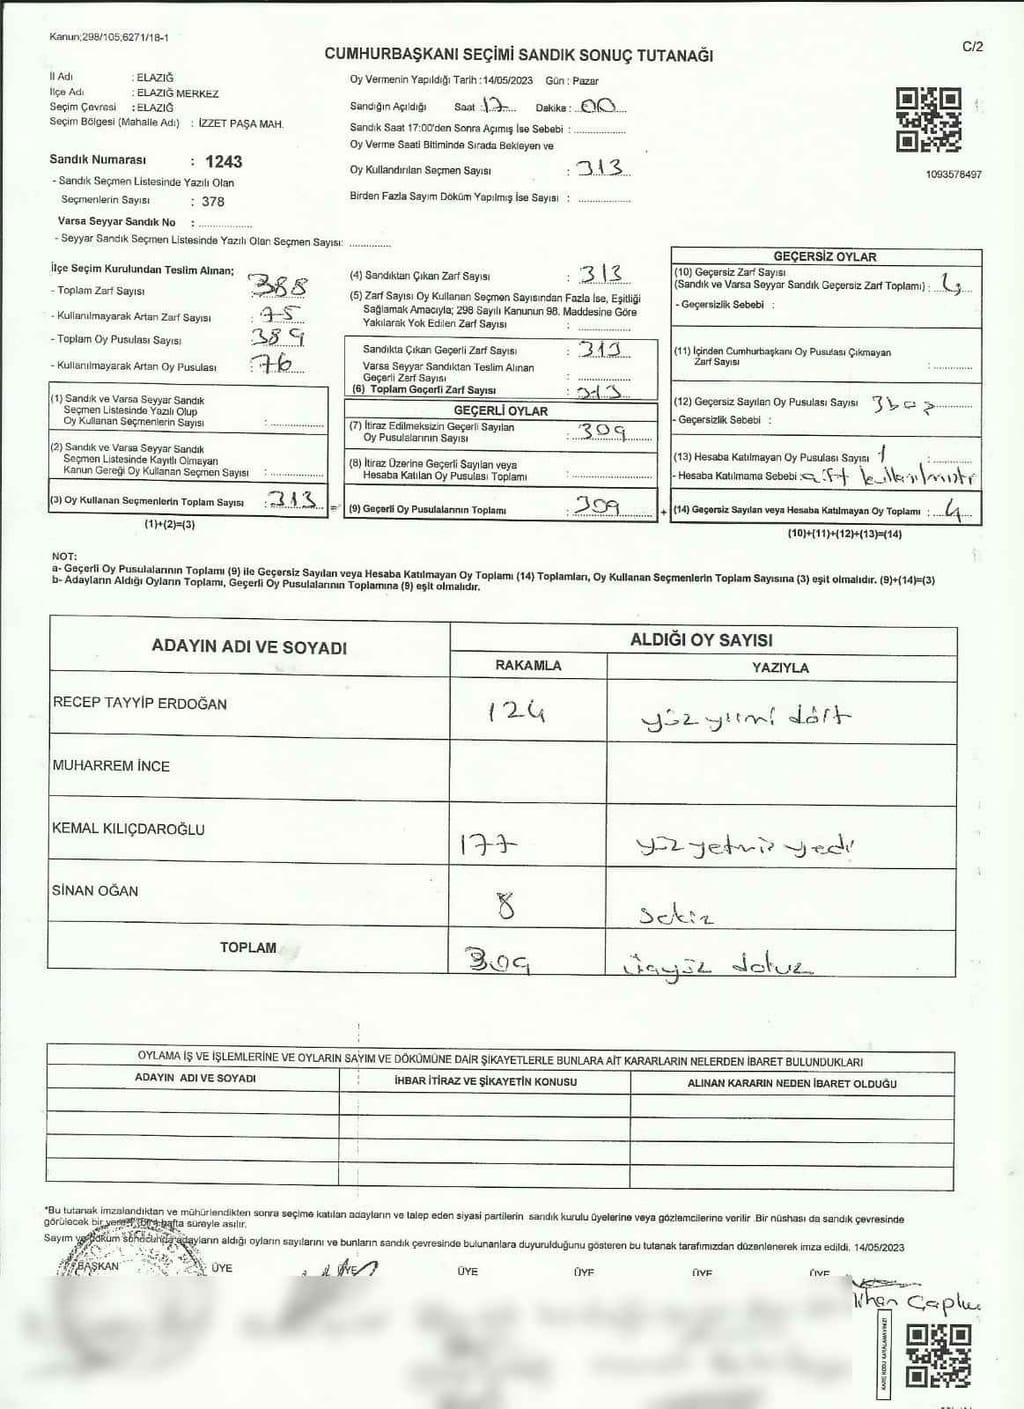 Kanun;298/105;6271/18-1
C/2
CUMHURBAŞKANI SEÇİMİ SANDIK SONUÇ TUTANAĞI
İl Adı : ELAZIĞ
İlçe Adı : ELAZIĞ MERKEZ
Seçim Çevresi : ELAZIĞ
Seçim Bölgesi (Mahalle Adı) : İZZET PAŞA MAH.
Sandık Numarası : 1243
- Sandık Seçmen Listesinde Yazılı Olan
Seçmenlerin Sayısı : 378
Varsa Seyyar Sandık No : ..................
- Seyyar Sandık Seçmen Listesinde Yazılı Olan Seçmen Sayısı: ..............
Oy Vermenin Yapıldığı Tarih :14/05/2023 Gün : Pazar
Sandığın Açıldığı Saat : 17 Dakika : 00
Sandık Saat 17:00'den Sonra Açımış İse Sebebi : ..................
Oy Verme Saati Bitiminde Sırada Bekleyen ve
Oy Kullandırılan Seçmen Sayısı : 313
Birden Fazla Sayım Döküm Yapılmış İse Sayısı : ..................
1093578497
İlçe Seçim Kurulundan Teslim Alınan;
- Toplam Zarf Sayısı : 388
- Kullanılmayarak Artan Zarf Sayısı : 75
- Toplam Oy Pusulası Sayısı : 389
- Kullanılmayarak Artan Oy Pusulası : 76
(1) Sandık ve Varsa Seyyar Sandık
Seçmen Listesinde Yazılı Olup
Oy Kullanan Seçmenlerin Sayısı : ..................
(2) Sandık ve Varsa Seyyar Sandık
Seçmen Listesinde Kayıtlı Olmayan
Kanun Gereği Oy Kullanan Seçmen Sayısı : ..................
(3) Oy Kullanan Seçmenlerin Toplam Sayısı : 313 =
(1)+(2)=(3)
(4) Sandıktan Çıkan Zarf Sayısı : 313
(5) Zarf Sayısı Oy Kullanan Seçmen Sayısından Fazla İse, Eşitliği
Sağlamak Amacıyla; 298 Sayılı Kanunun 98. Maddesine Göre
Yakılarak Yok Edilen Zarf Sayısı : ..................
Sandıkta Çıkan Geçerli Zarf Sayısı : 313
Varsa Seyyar Sandıktan Teslim Alınan
Geçerli Zarf Sayısı : ..................
(6) Toplam Geçerli Zarf Sayısı : 313
GEÇERLİ OYLAR
(7) İtiraz Edilmeksizin Geçerli Sayılan
Oy Pusulalarının Sayısı : 309
(8) İtiraz Üzerine Geçerli Sayılan veya
Hesaba Katılan Oy Pusulası Toplamı : ..................
(9) Geçerli Oy Pusulalarının Toplamı : 309 +
GEÇERSİZ OYLAR
(10) Geçersiz Zarf Sayısı
(Sandık ve Varsa Seyyar Sandık Geçersiz Zarf Toplamı) : 4
- Geçersizlik Sebebi :
(11) İçinden Cumhurbaşkanı Oy Pusulası Çıkmayan
Zarf Sayısı : ..................
(12) Geçersiz Sayılan Oy Pusulası Sayısı 3 boş
- Geçersizlik Sebebi :
(13) Hesaba Katılmayan Oy Pusulası Sayısı 1 : ..................
- Hesaba Katılmama Sebebi : çift kullanılmıştır
(14) Geçersiz Sayılan veya Hesaba Katılmayan Oy Toplamı : 4
(10)+(11)+(12)+(13)=(14)
NOT:
a- Geçerli Oy Pusulalarının Toplamı (9) ile Geçersiz Sayılan veya Hesaba Katılmayan Oy Toplamı (14) Toplamları, Oy Kullanan Seçmenlerin Toplam Sayısına (3) eşit olmalıdır. (9)+(14)=(3)
b- Adayların Aldığı Oyların Toplamı, Geçerli Oy Pusulalarının Toplamına (9) eşit olmalıdır.
ADAYIN ADI VE SOYADI
ALDIĞI OY SAYISI
RAKAMLA YAZIYLA
RECEP TAYYİP ERDOĞAN 124 yüz yirmi dört
MUHARREM İNCE
KEMAL KILIÇDAROĞLU 177 yüz yetmiş yedi
SİNAN OĞAN 8 sekiz
TOPLAM 309 üçyüz dokuz
OYLAMA İŞ VE İŞLEMLERİNE VE OYLARIN SAYIM VE DÖKÜMÜNE DAİR ŞİKAYETLERLE BUNLARA AİT KARARLARIN NELERDEN İBARET BULUNDUKLARI
ADAYIN ADI VE SOYADI İHBAR İTİRAZ VE ŞİKAYETİN KONUSU ALINAN KARARIN NEDEN İBARET OLDUĞU
*Bu tutanak imzalandıktan ve mühürlendikten sonra seçime katılan adayların ve talep eden siyasi partilerin sandık kurulu üyelerine veya gözlemcilerine verilir .Bir nüshası da sandık çevresinde
görülecek bir yerde bir hafta süreyle asılır.
Sayım ve döküm sonucunda adayların aldığı oyların sayılarını ve bunların sandık çevresinde bulunanlara duyurulduğunu gösteren bu tutanak tarafımızdan düzenlenerek imza edildi. 14/05/2023
BAŞKAN ÜYE ÜYE ÜYE ÜYE ÜYE ÜYE